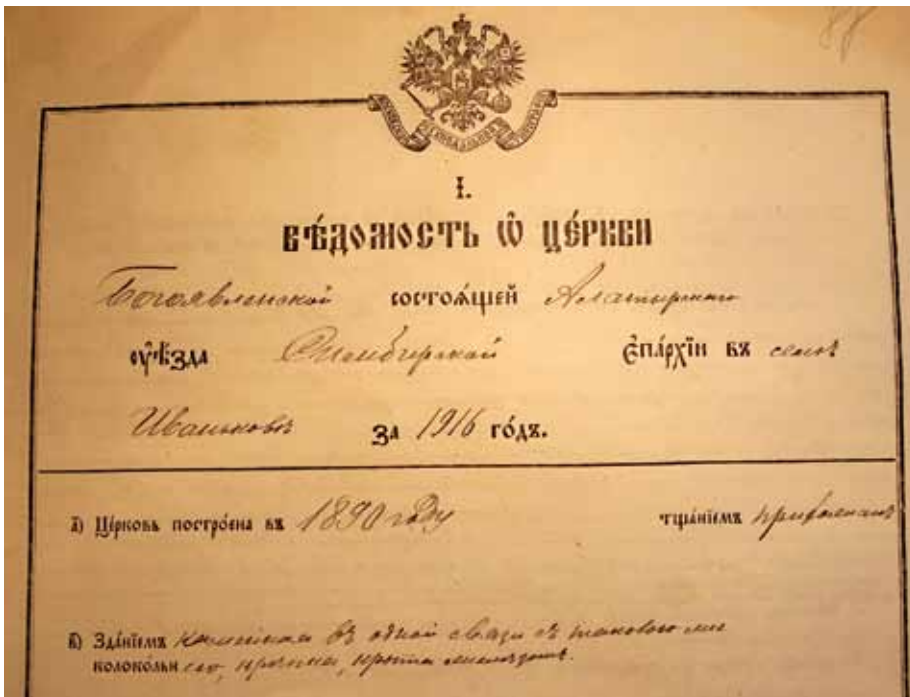 І.
ВѢ́ДОМОСТЬ Ѡ ЦЕ́РКВИ
Богоявленской состоѧ́щей Алатырскаго
ᲂу҆ѣзда Симбирской Є҆па́рхїи въ селѣ
Иваньково за 1916 го́дъ.
а҃) Це́рковь постро́ена въ 1890 году тща́нїемъ прихожанъ
в҃) Зда́нїемъ каменная въ одной связи съ таковою же
колоко́льнею, прочна, крыта желѣзомъ.